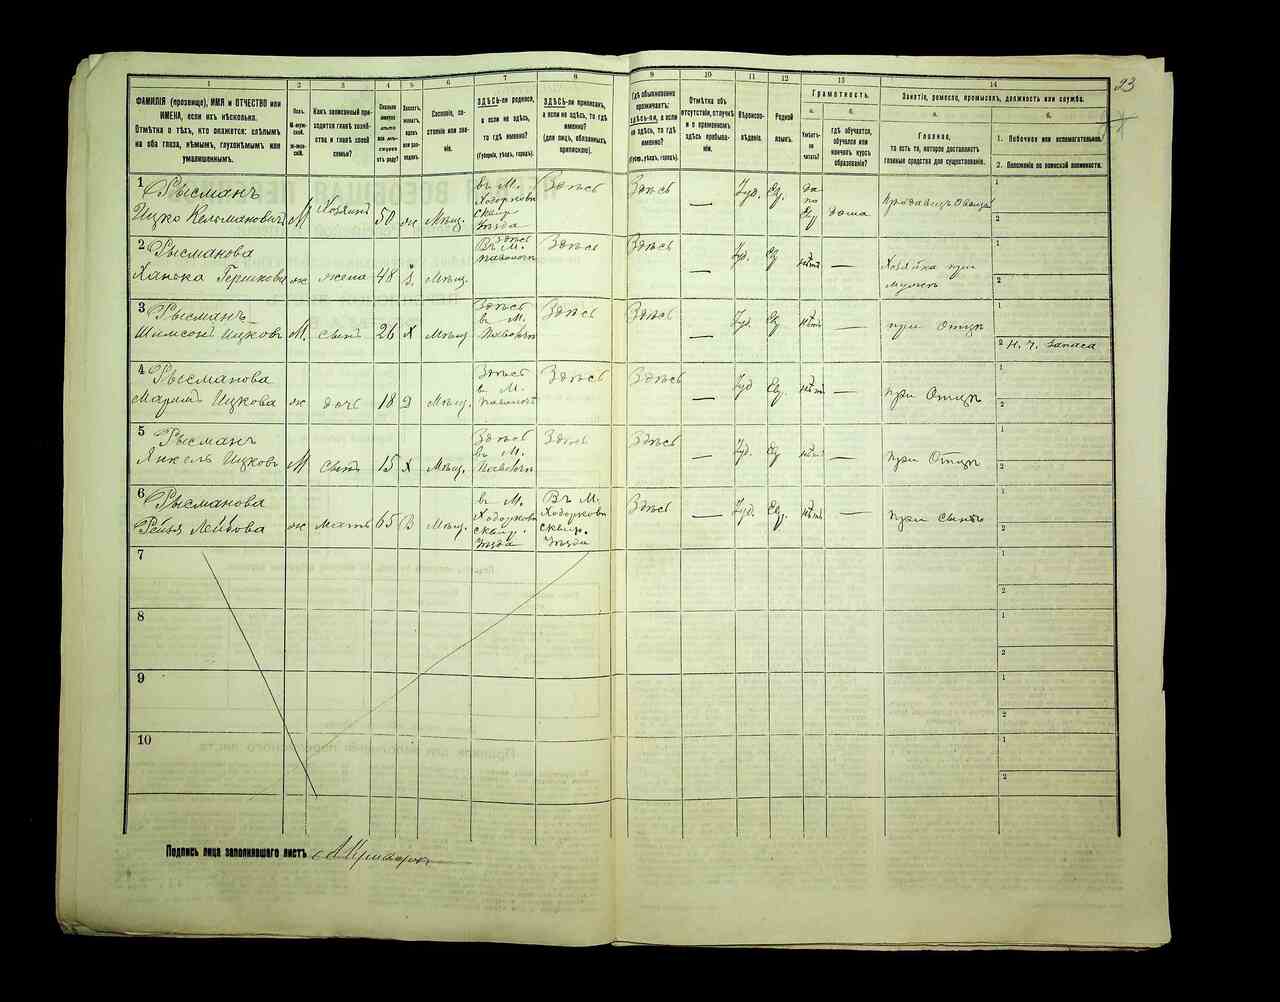 23
1 2 3 4 5 6 7 8 9 10 11 12 13 14
ФАМИЛІЯ (прозвище), ИМЯ и ОТЧЕСТВО или
ИМЕНА, если ихъ нѣсколько.
Отмѣтка о тѣхъ, кто окажется: слѣпымъ
на оба глаза, нѣмымъ, глухонѣмымъ или
умалишеннымъ.
Полъ.
Какъ записанный при-
ходится главѣ хозяй-
ства и главѣ своей
семьи?
Сословіе, со-
стояніе или зва-
ніе.
ЗДѢСЬ-ли родился,
а если не здѣсь,
то гдѣ именно?
(Губернія, уѣздъ, городъ).
ЗДѢСЬ-ли приписанъ,
а если не здѣсь, то гдѣ
именно?
(для лицъ, обязанныхъ
припискою).
Гдѣ обыкновенно
проживаетъ:
здѣсь-ли, а если
не здѣсь, то гдѣ
именно?
(Губер., уѣздъ, городъ).
Отмѣтка объ
отсутствіи, отлучкѣ
и о временномъ
здѣсь пребыва-
ніи.
Вѣроиспо-
вѣданіе.
Родной
языкъ.
Грамотность.
а. б.
Умѣетъ-
ли
читать?
Гдѣ обучается,
обучался или
кончилъ курсъ
образованія?
Занятіе, ремесло, промыселъ, должность или служба.
а. б.
Главное,
то есть то, которое доставляетъ
главныя средства для существованія.
1. Побочное или вспомогательное.
2. Положеніе по воинской повинности.
1 Рысманъ
Ицко Кельмановичъ М Хозяинъ 50 ж Мѣщ.
въ М.
Ходорковѣ
сквир.
Уѣзда
Здѣсь Здѣсь — Іуд. Ев. да
по
Евр дома Продавецъ
1
2
2 Рысманова
Ханька Гершкова ж жена 48 Мѣщ.
Здѣсь
Въ М.
Паволочи
Здѣсь Здѣсь — Іуд. Ев нѣтъ — Хозяйка при
мужѣ
1
2
3 Рысманъ
Шимсонъ Ицковъ М. сынъ 26 Х Мѣщ.
Здѣсь
въ М.
Паволочи
Здѣсь Здѣсь — Іуд. Ев нѣтъ — при Отцѣ
1
2 Н. Ч. Запаса
4 Рысманова
Ицкова ж дочь 18 Мѣщ.
Здѣсь
въ М.
Паволочи
Здѣсь Здѣсь — Іуд Ев. нѣтъ — при Отцѣ
1
2
5 Рысманъ
Янкель Ицковъ М сынъ 15 Х Мѣщ.
Здѣсь
въ М.
Паволочи
Здѣсь Здѣсь — Іуд. Ев нѣтъ — при Отцѣ
1
2
6 Рысманова
Рейзя Лейбова ж мать 65 В Мѣщ.
въ М.
Ходорковѣ
сквир.
Уѣзда
Въ М.
Ходорковѣ
сквир.
Уѣзда
Здѣсь — Іуд. Ев. нѣтъ — при сынѣ
1
2
7
1
2
8
1
2
9
1
2
10
1
2
Подпись лица заполнявшаго листъ